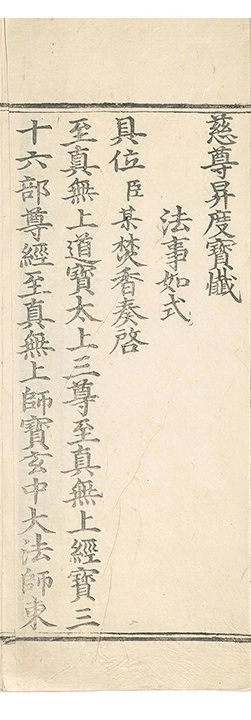 慈尊昇度寶懺
法事如式
具位臣某焚香奏啓
至真無上道寶太上三尊至真無上經寶三
十六部尊經至真無上師寶玄中大法師東